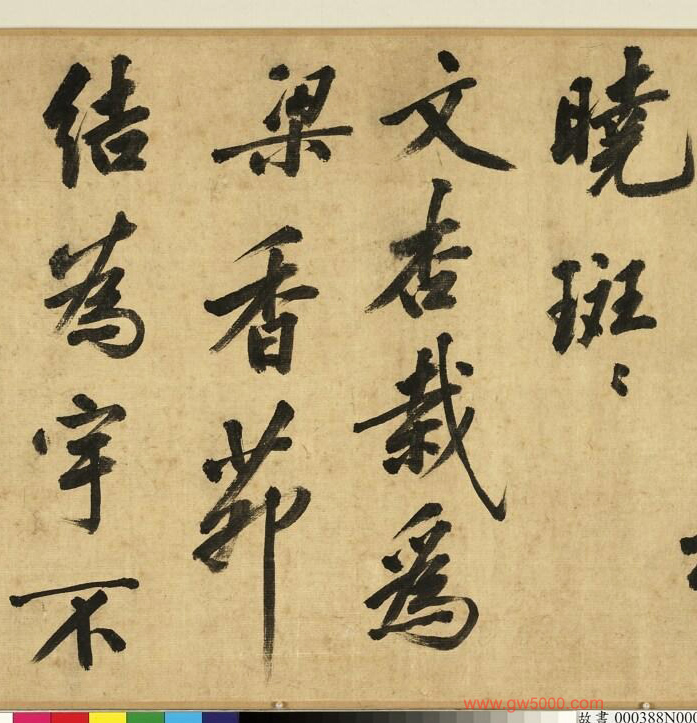 曉斑〻
文杏栽爲
梁香茆
結為宇不
www.gw5000.com
故書 000388N00